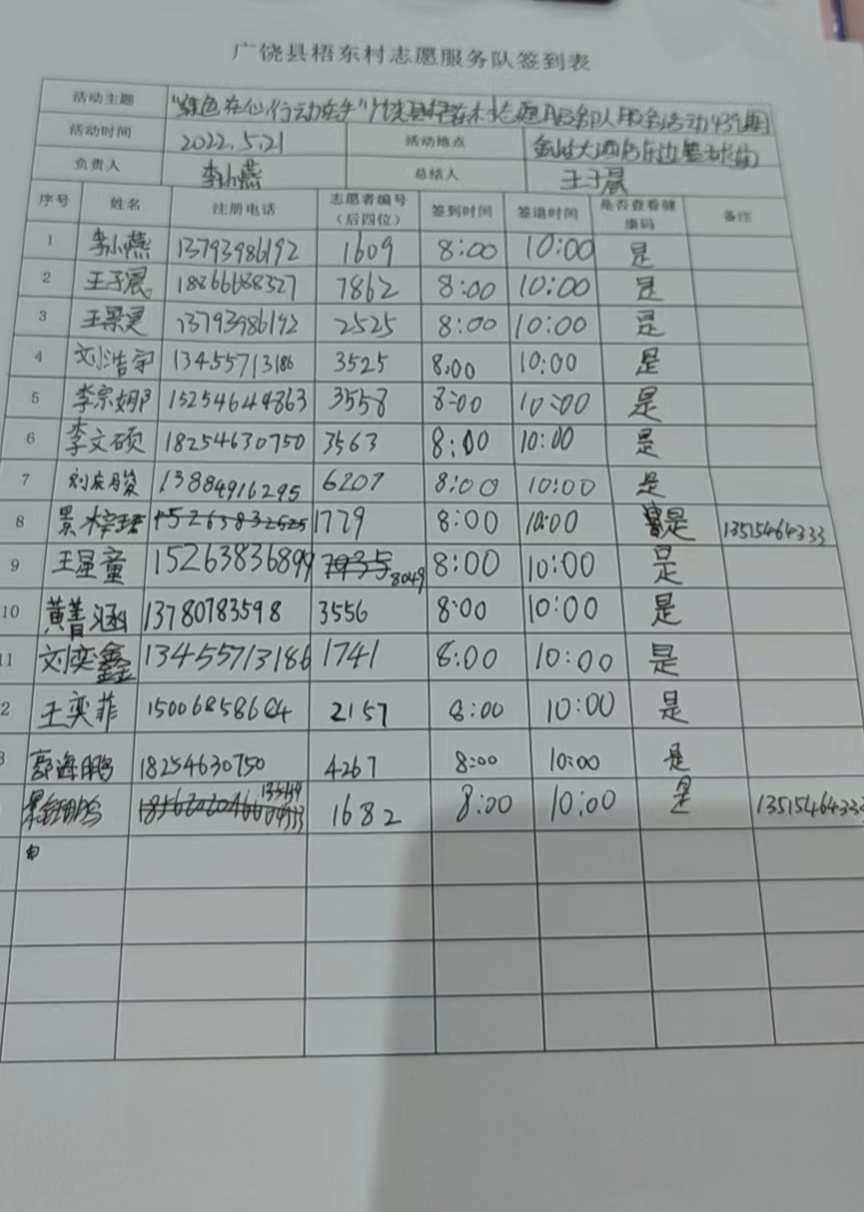 广饶县梧东村志愿服务队签到表
活动主题 "绿色在心行动在手"广饶县梧东村志愿服务队服务活动 期
活动时间 2022.5.21 活动地点
负责人 李小燕 总结人 王子晨
序号 姓名 注册电话 志愿者编号（后四位） 签到时间 签退时间 是否查看健康码 备注
1 李小燕 13793986192 1609 8:00 10:00 是
2 王子晨 18866688327 7862 8:00 10:00 是
3 13793986192 2525 8:00 10:00 是
4 刘浩宇 13455713186 3525 8:00 10:00 是
5 李宗 15254644863 3558 8:00 10:00 是
6 李文硕 18254630750 3563 8:00 10:00 是
7 刘庆骏 13884916295 6207 8:00 10:00 是
8 景梓 15263832525 1779 8:00 10:00 是 13515464333
9 王星童 15263836899 7935 8049 8:00 10:00 是
10 黄菁涵 13780783598 3556 8:00 10:00 是
11 刘奕鑫 13455713186 1741 8:00 10:00 是
2 王奕菲 15006858664 2157 8:00 10:00 是
3 郭海鹏 18254630750 4267 8:00 10:00 是
1682 8:00 10:00 是 13515464333